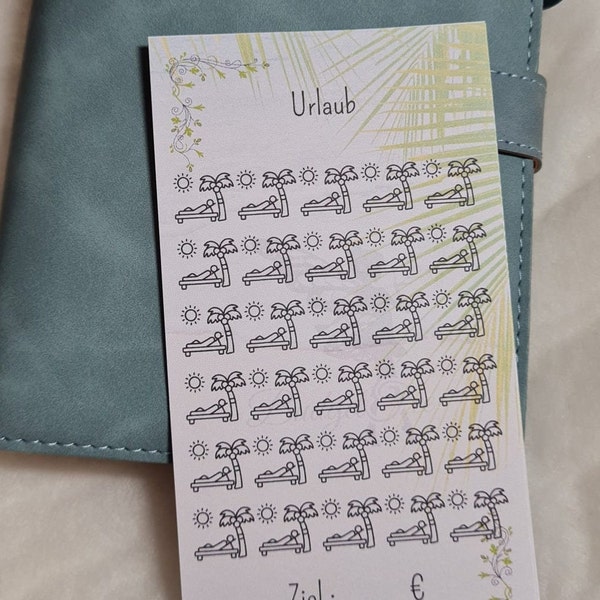 Urlaub
Ziel: €